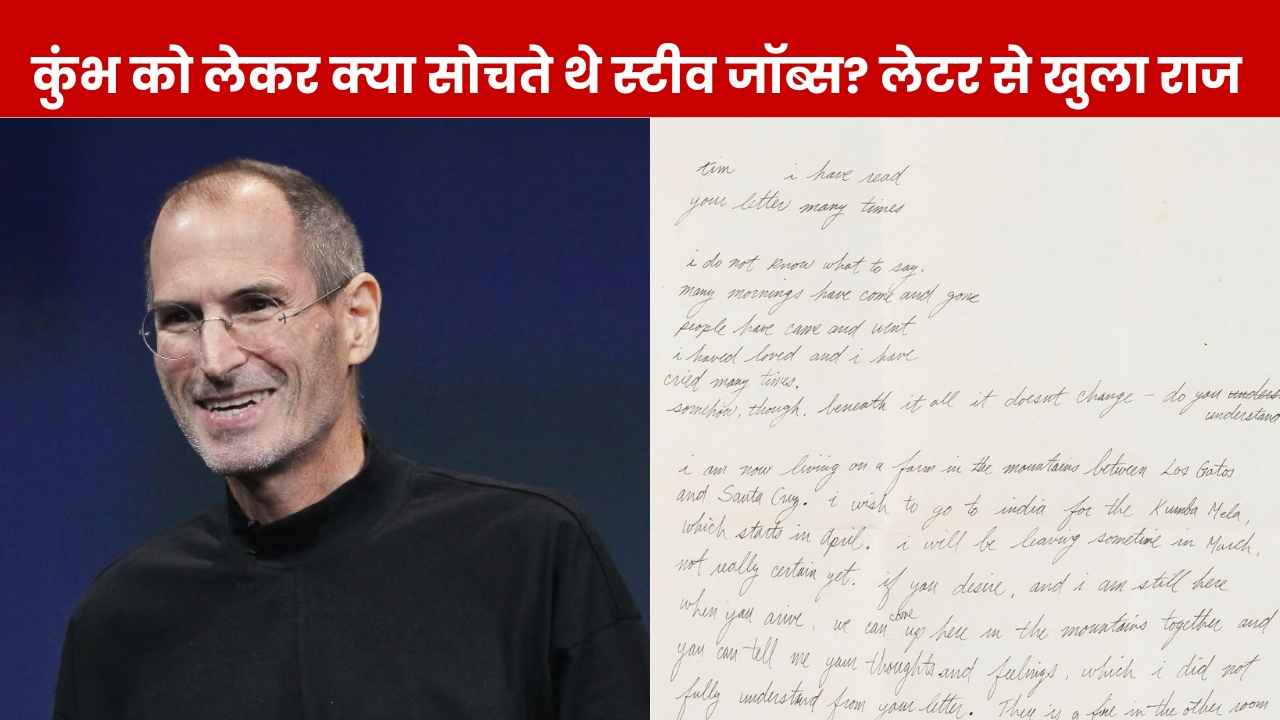 कुंभ को लेकर क्या सोचते थे स्टीव जॉब्स? लेटर से खुला राज
tim i have read
your letter many times
i do not know what to say.
many mornings have come and gone
people have came and went
i haved loved and i have
cried many times.
somehow, though, beneath it all it doesnt change - do you unders
understand
i am now living on a farm in the mountains between Los Gatos
and Santa Cruz. i wish to go to india for the Kumba Mela,
which starts in april. i will be leaving sometime in March,
not really certain yet. if you desire, and i am still here
when you arive, we can come up here in the mountains together and
you can tell me your thoughts and feelings, which i did not
fully understand from your letter. There is a fire in the other room